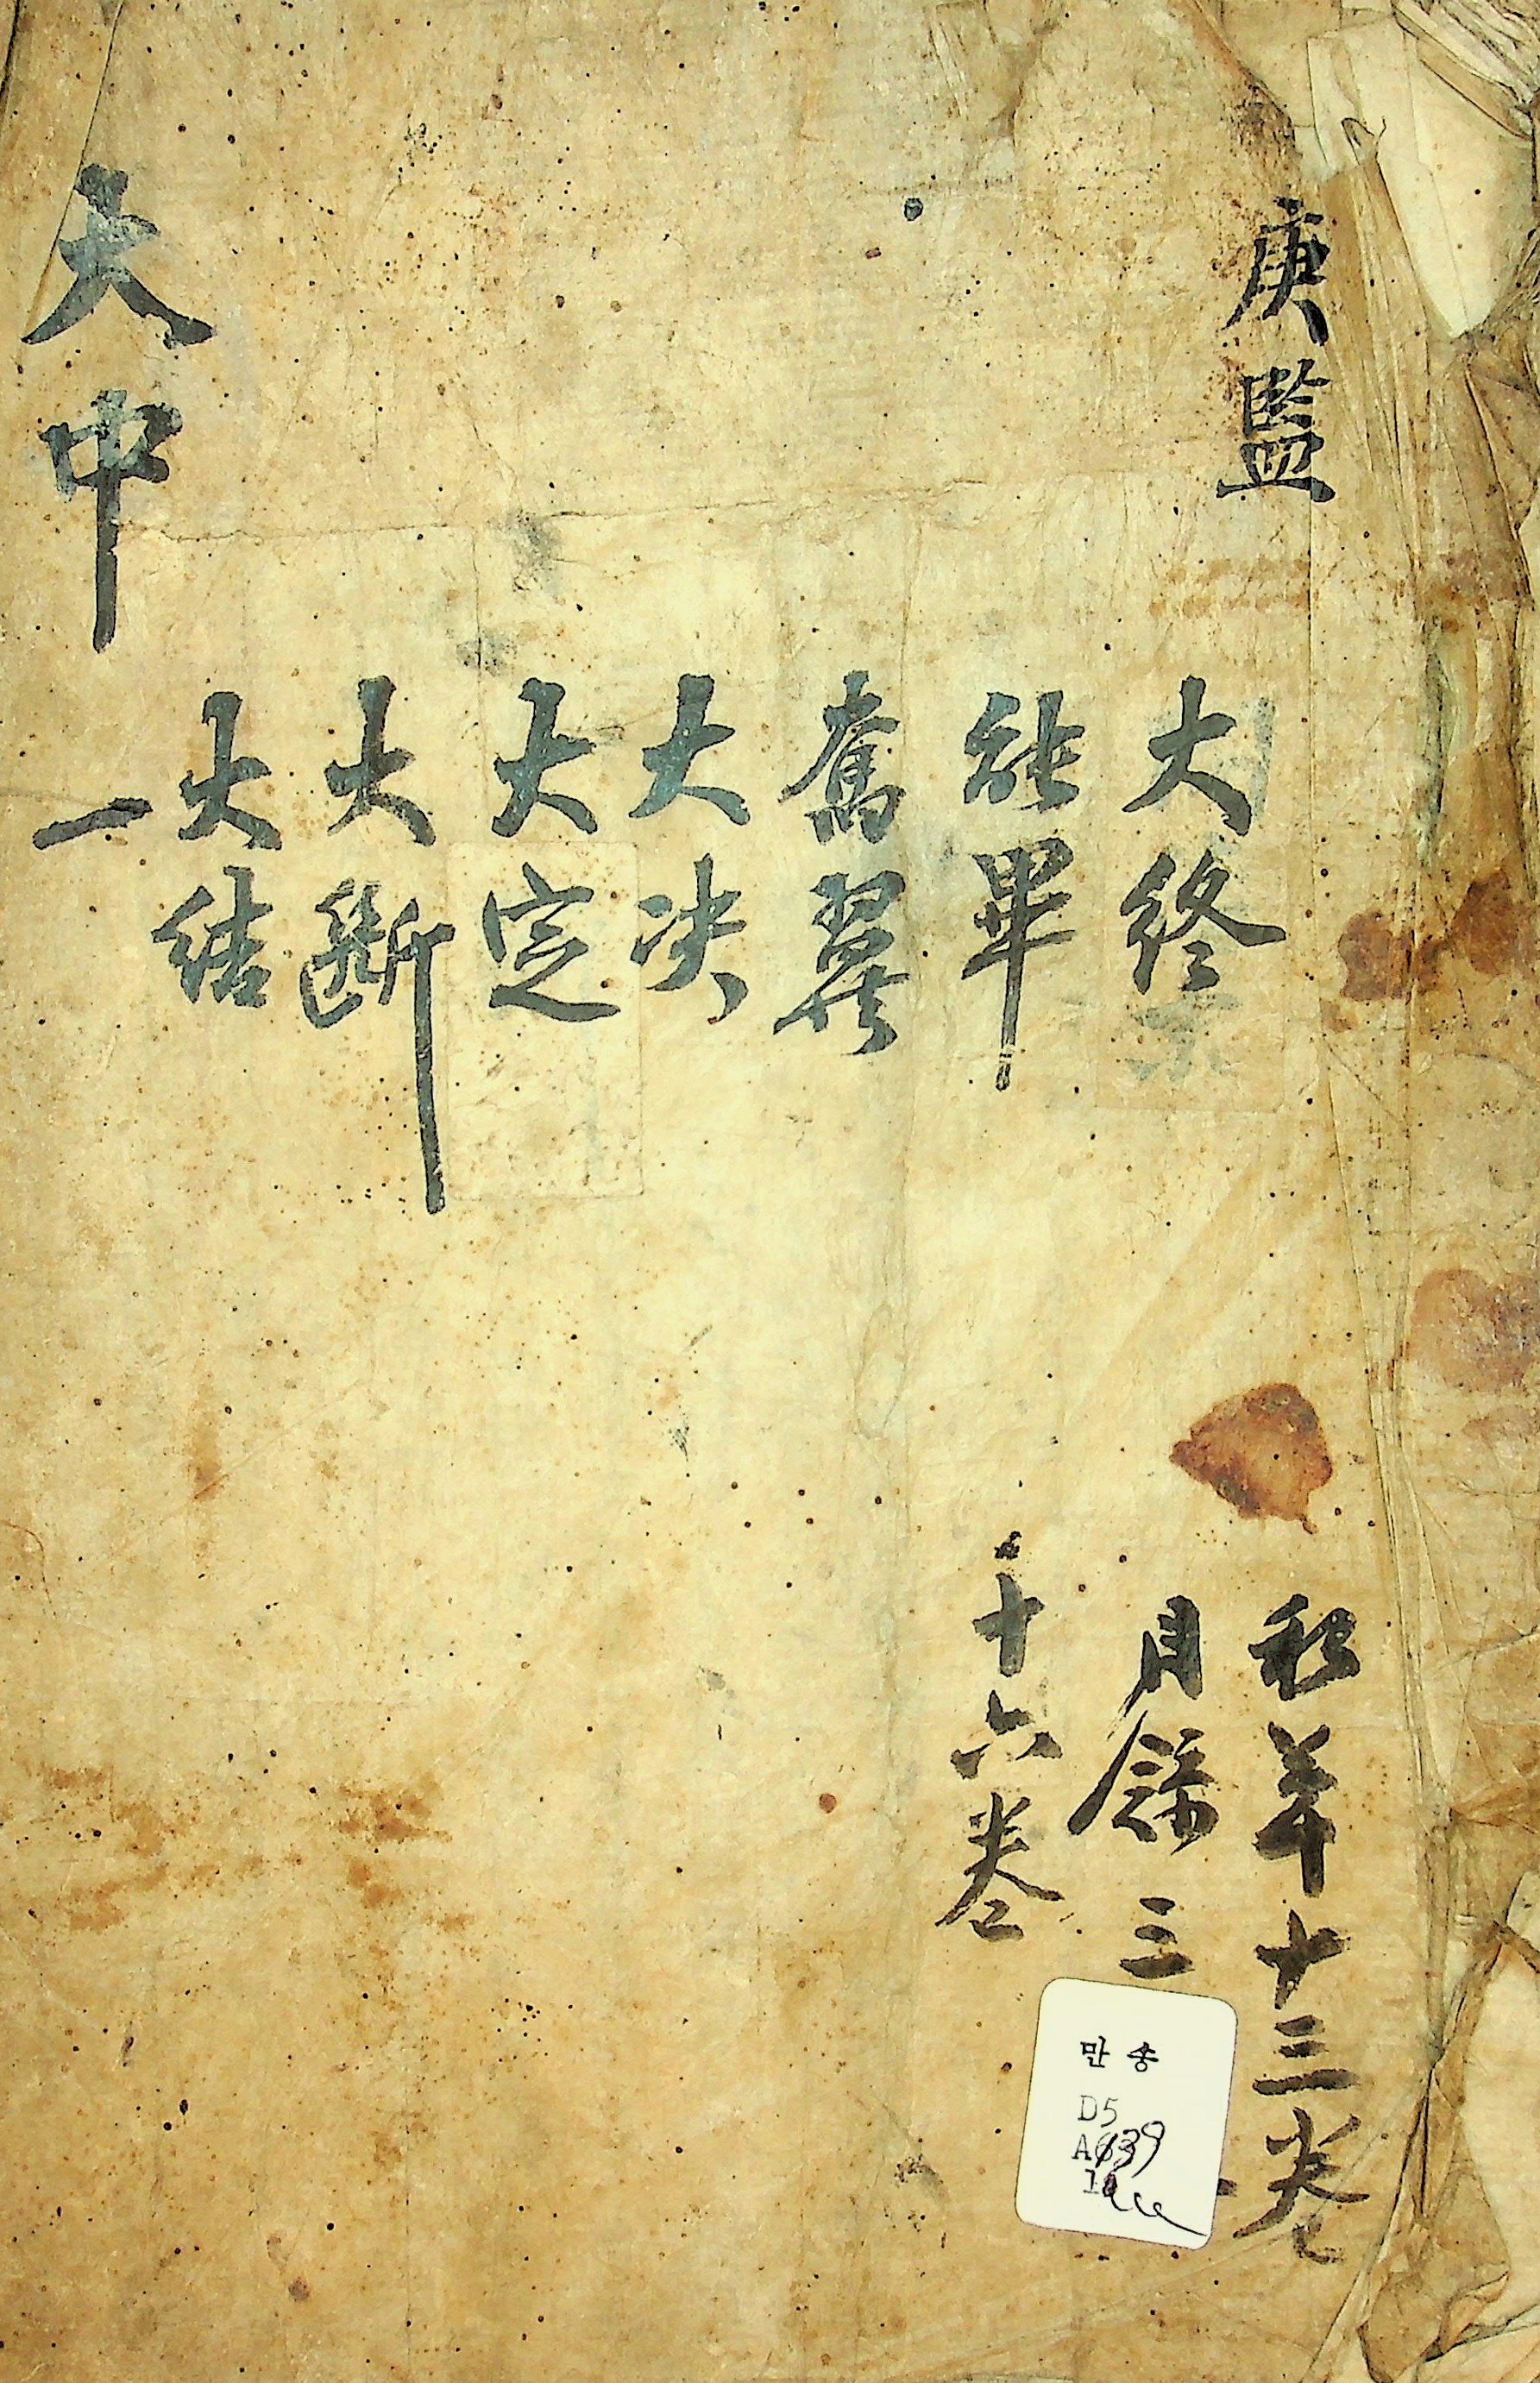 庚監
大終
能畢
奮翼
大决
大定
大断
大結
一
大中
和羊十三卷
月餘三
十六卷
만송
D5
A639